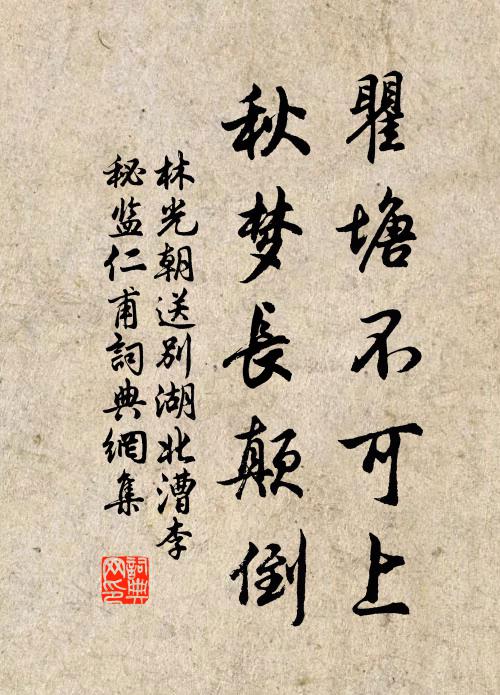 瞿塘不可上
秋梦長颠倒
林光朝送别湖北漕李
秘监仁甫詞典網集
詞典网印